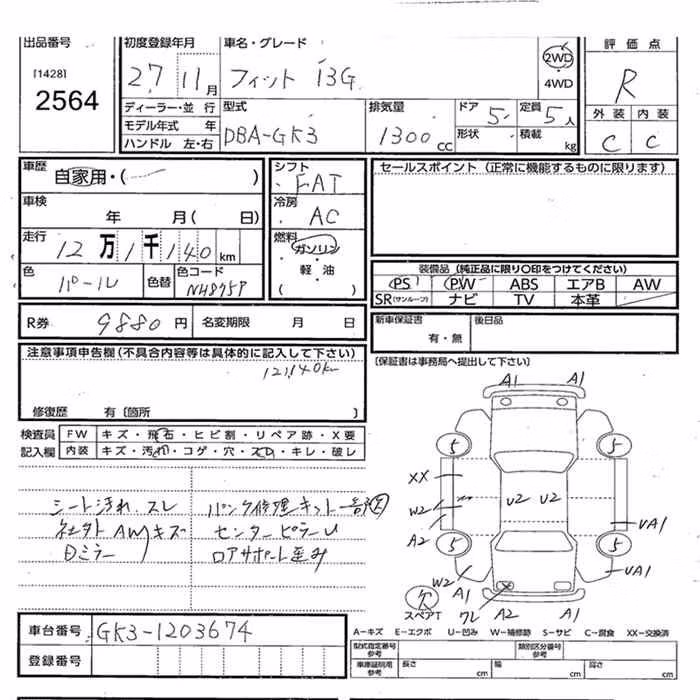 出品番号
[1428]
2564
初度登録年月
27 11月
車名・グレード
フィット 13G
2WD
・
4WD
評価点
R
ディーラー・並行
モデル年式 年
ハンドル 左・右
型式
DBA-GK3
排気量
1300 cc
ドア 5
形状
定員 5人
積載 kg
外装 内装
C C
車歴
自家用・( )
車検
年 月( 日)
走行
12万1千140km
色
パール
色替
色コード
NH875P
シフト
FAT
冷房
AC
燃料
ガソリン
・
軽油
( )
セールスポイント (正常に機能するものに限ります)
装備品 (純正品に限り〇印をつけてください)
PS PW ABS エアB AW
SR(サンルーフ) ナビ TV 本革
R券 9880円 名変期限 月 日
新車保証書
有・無
後日品
[保証書は事務局へ提出して下さい]
注意事項申告欄(不具合内容等は具体的に記入して下さい)
121,140km
修復歴 有〔箇所 〕
検査員
記入欄
FW キズ・飛石・ヒビ割・リペア跡・X要
内装 キズ・汚れ・コゲ・穴・スレ・キレ・破レ
シート汚れ、スレ パンク修理キット一部欠
社外AWキズ センターピラーU
Dミラー ロアサポート歪み
A1 A1
5 5
XX
W2
A2
U2 U2
UA1
5 5
W2
A1
UA1
スペアT
ワレ A2 A1
A-キズ E-エクボ U-凹み W-補修跡 S-サビ C-腐食 XX-交換済
車台番号 GK3-1203674
登録番号
型式指定番号
参考
類別区分番号
参考
車庫証明用
参考
長さ cm 幅 cm 高さ cm